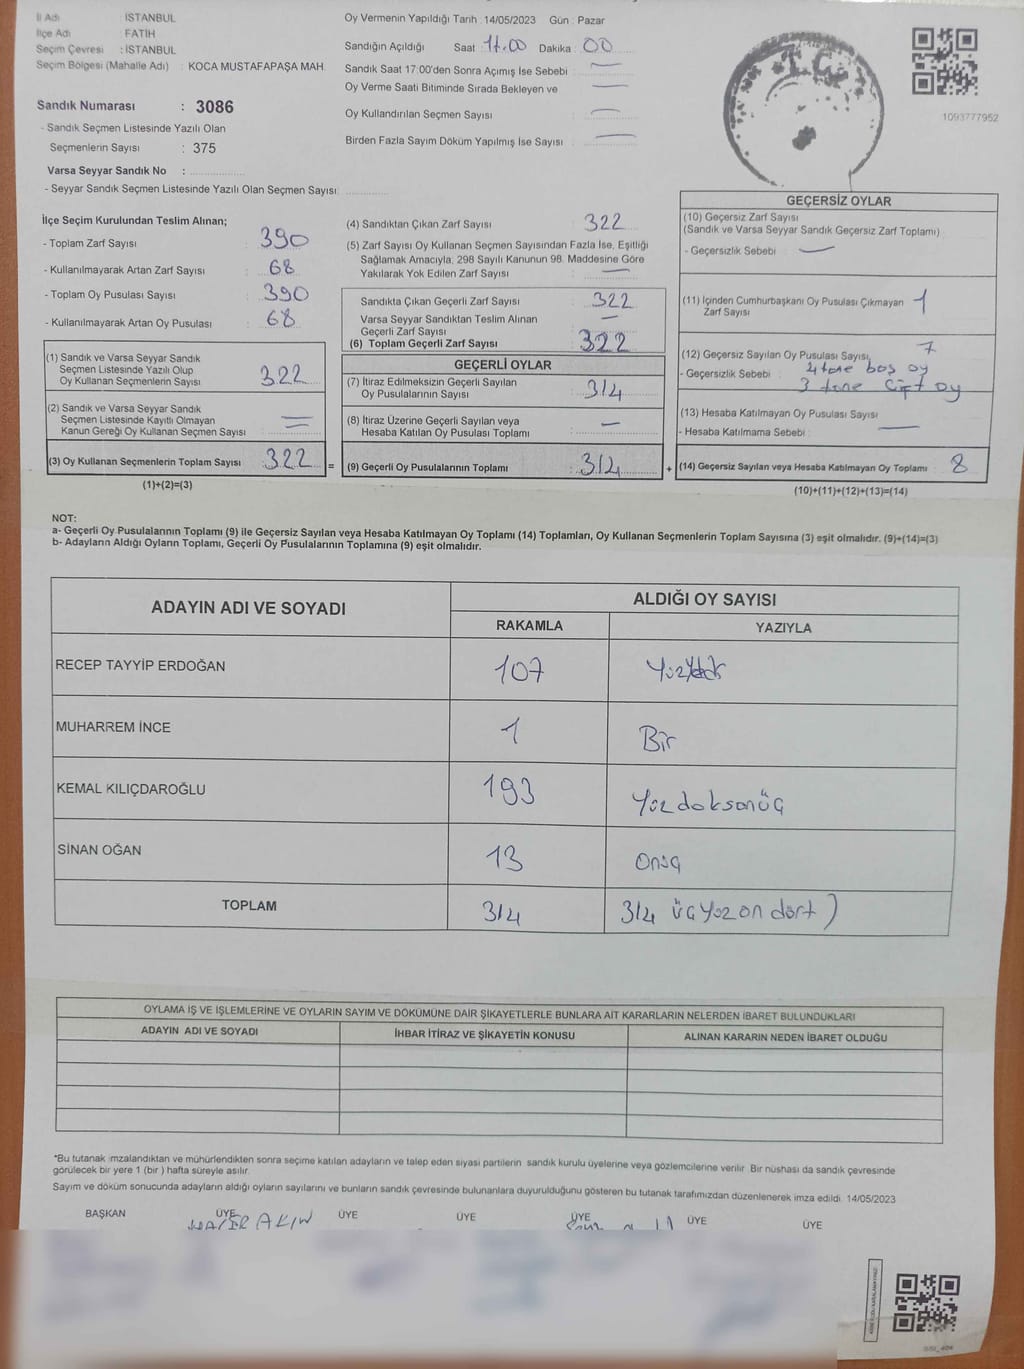 İli Adı : İSTANBUL
İlçe Adı : FATİH
Seçim Çevresi : İSTANBUL
Seçim Bölgesi (Mahalle Adı) : KOCA MUSTAFAPAŞA MAH.
Sandık Numarası : 3086
- Sandık Seçmen Listesinde Yazılı Olan
Seçmenlerin Sayısı : 375
Varsa Seyyar Sandık No :
- Seyyar Sandık Seçmen Listesinde Yazılı Olan Seçmen Sayısı
Oy Vermenin Yapıldığı Tarih : 14/05/2023 Gün : Pazar
Sandığın Açıldığı Saat : 17.00 Dakika : 00
Sandık Saat 17:00'den Sonra Açımış İse Sebebi : —
Oy Verme Saati Bitiminde Sırada Bekleyen ve —
Oy Kullandırılan Seçmen Sayısı : —
Birden Fazla Sayım Döküm Yapılmış İse Sayısı : —
T.C.
1093777952
İlçe Seçim Kurulundan Teslim Alınan;
- Toplam Zarf Sayısı : 390
- Kullanılmayarak Artan Zarf Sayısı : 68
- Toplam Oy Pusulası Sayısı : 390
- Kullanılmayarak Artan Oy Pusulası : 68
(1) Sandık ve Varsa Seyyar Sandık
Seçmen Listesinde Yazılı Olup
Oy Kullanan Seçmenlerin Sayısı : 322
(2) Sandık ve Varsa Seyyar Sandık
Seçmen Listesinde Kayıtlı Olmayan
Kanun Gereği Oy Kullanan Seçmen Sayısı : =
(3) Oy Kullanan Seçmenlerin Toplam Sayısı : 322 =
(1)+(2)=(3)
(4) Sandıktan Çıkan Zarf Sayısı : 322
(5) Zarf Sayısı Oy Kullanan Seçmen Sayısından Fazla İse, Eşitliği
Sağlamak Amacıyla, 298 Sayılı Kanunun 98. Maddesine Göre
Yakılarak Yok Edilen Zarf Sayısı : —
Sandıkta Çıkan Geçerli Zarf Sayısı : 322
Varsa Seyyar Sandıktan Teslim Alınan
Geçerli Zarf Sayısı : —
(6) Toplam Geçerli Zarf Sayısı : 322
GEÇERLİ OYLAR
(7) İtiraz Edilmeksizin Geçerli Sayılan
Oy Pusulalarının Sayısı : 314
(8) İtiraz Üzerine Geçerli Sayılan veya
Hesaba Katılan Oy Pusulası Toplamı : —
(9) Geçerli Oy Pusulalarının Toplamı : 314 +
GEÇERSİZ OYLAR
(10) Geçersiz Zarf Sayısı
(Sandık ve Varsa Seyyar Sandık Geçersiz Zarf Toplamı) :
- Geçersizlik Sebebi : —
(11) İçinden Cumhurbaşkanı Oy Pusulası Çıkmayan : 1
Zarf Sayısı
(12) Geçersiz Sayılan Oy Pusulası Sayısı : 7
- Geçersizlik Sebebi : 4 tane boş oy
3 tane Çift oy
(13) Hesaba Katılmayan Oy Pusulası Sayısı :
- Hesaba Katılmama Sebebi : —
(14) Geçersiz Sayılan veya Hesaba Katılmayan Oy Toplamı : 8
(10)+(11)+(12)+(13)=(14)
NOT:
a- Geçerli Oy Pusulalarının Toplamı (9) ile Geçersiz Sayılan veya Hesaba Katılmayan Oy Toplamı (14) Toplamları, Oy Kullanan Seçmenlerin Toplam Sayısına (3) eşit olmalıdır. (9)+(14)=(3)
b- Adayların Aldığı Oyların Toplamı, Geçerli Oy Pusulalarının Toplamına (9) eşit olmalıdır.
ADAYIN ADI VE SOYADI ALDIĞI OY SAYISI
RAKAMLA YAZIYLA
RECEP TAYYİP ERDOĞAN 107
MUHARREM İNCE 1 Bir
KEMAL KILIÇDAROĞLU 193 Yüz doksanüç
SİNAN OĞAN 13 Onüç
TOPLAM 314 314 üçyüz on dört)
OYLAMA İŞ VE İŞLEMLERİNE VE OYLARIN SAYIM VE DÖKÜMÜNE DAİR ŞİKAYETLERLE BUNLARA AİT KARARLARIN NELERDEN İBARET BULUNDUKLARI
ADAYIN ADI VE SOYADI İHBAR İTİRAZ VE ŞİKAYETİN KONUSU ALINAN KARARIN NEDEN İBARET OLDUĞU
*Bu tutanak imzalandıktan ve mühürlendikten sonra seçime katılan adayların ve talep eden siyasi partilerin sandık kurulu üyelerine veya gözlemcilerine verilir. Bir nüshası da sandık çevresinde
görülecek bir yere 1 (bir) hafta süreyle asılır.
Sayım ve döküm sonucunda adayların aldığı oyların sayılarını ve bunların sandık çevresinde bulunanlara duyurulduğunu gösteren bu tutanak tarafımızdan düzenlenerek imza edildi. 14/05/2023
BAŞKAN ÜYE ÜYE ÜYE ÜYE ÜYE ÜYE
AKIN